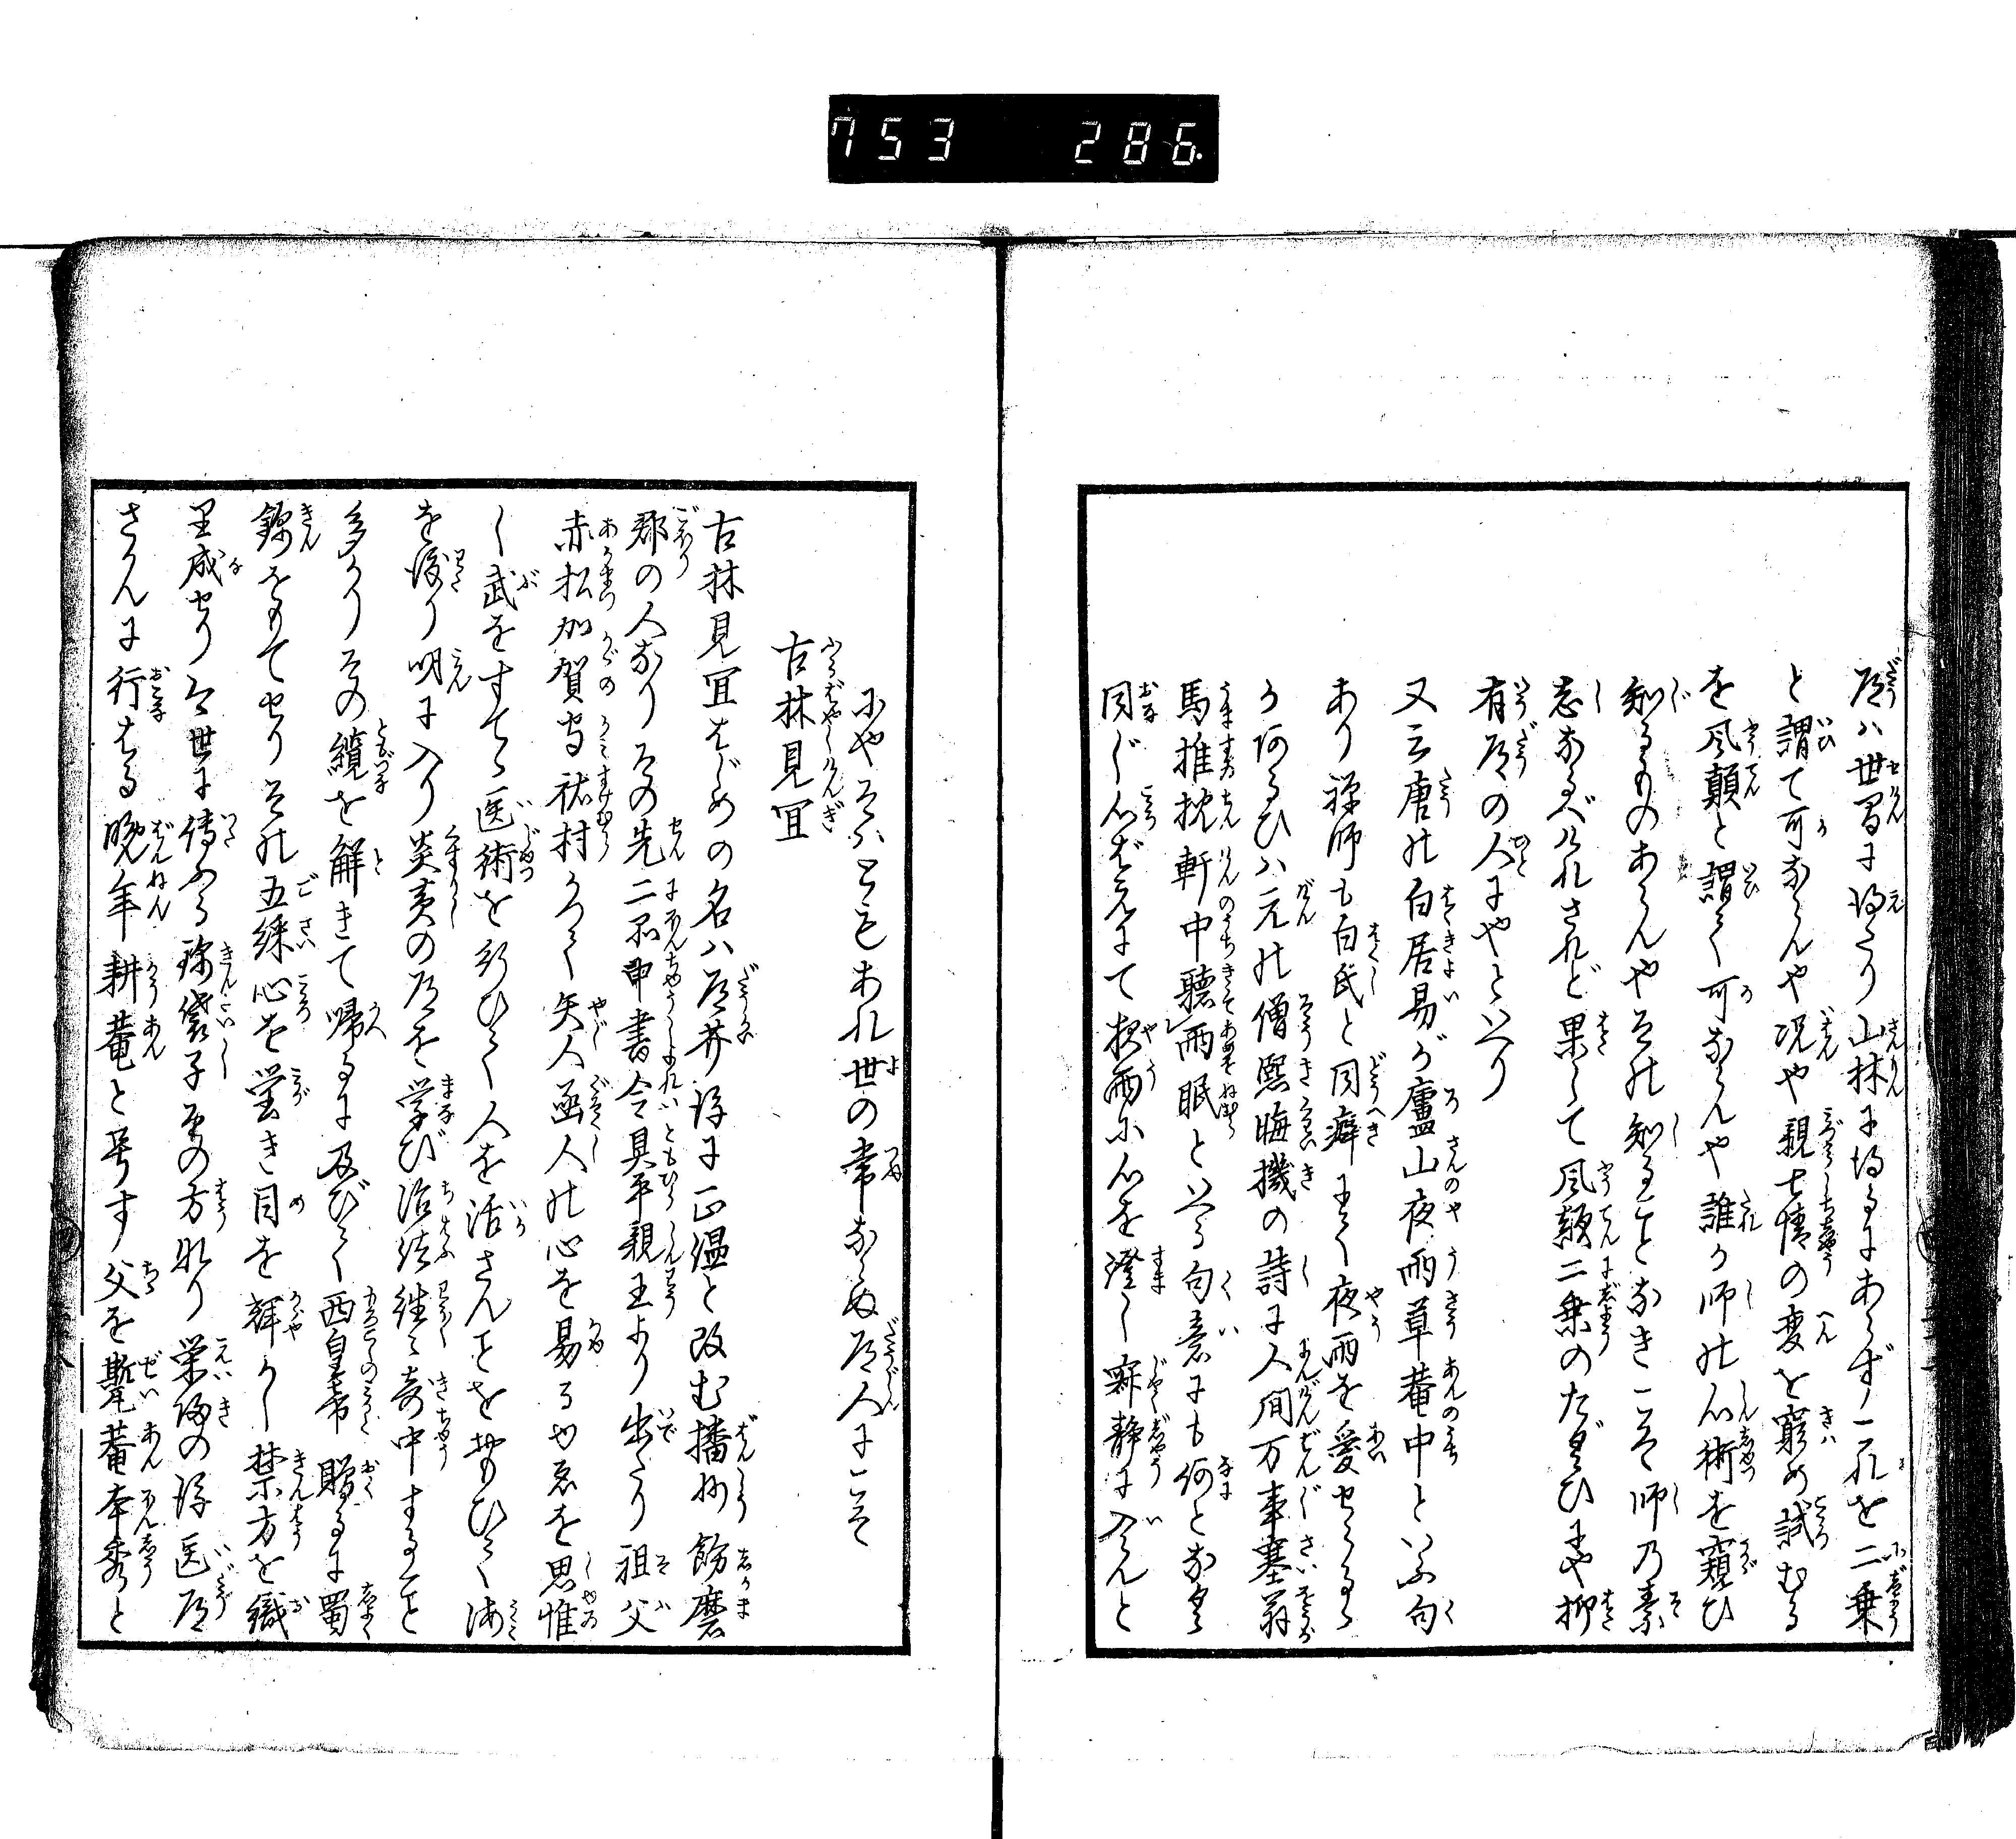 753 286
道ハ世間に得たり山林に得るにあらず一これを二乗
と謂て可ならんや況や親七情の変を窮め試むる
を風顛と謂て可ならんや誰か師の心術を窺ひ
知るものあらんやその知ることなきこそ師乃素
志なるべけれされど果して風顛二乗のたぐひにや抑
有道の人にやといへり
又云唐の白居易が廬山夜雨草菴中といふ句
あり禅師も白氏と同癖にて夜雨を愛せらるゝ
か或るひハ元の僧熙晦機の詩に人間万事塞翁
馬推枕軒中聴雨眠といへる句意にも何となく
同じ心ばえにて夜雨に心を澄し寂静に入んと
にやそハともあれ世の常ならぬ道人にこそ
古林見宜
古林見宜はじめの名ハ道芥後に正温と改む播州飾磨
郡の人なりその先二品中書令具平親王より出たり祖父
赤松加賀守祐村かつて矢人函人の心を易るゆゑを思惟
し武をすてゝ医術を行ひて人を活さんことをおもひて海
を渡り明に入り炎黄の道を学び治法往〻奇中すること
多かりその纜を解きて帰るに及びて西皇帝贈るに蜀
錦をもてせりその五綵心を蛍き目を輝かし禁方を織
里成せり今世に傳ふる錦袋子その方なり栄陽の後医道
さかんに行はる晩年耕菴と号す父を〓菴本秀と